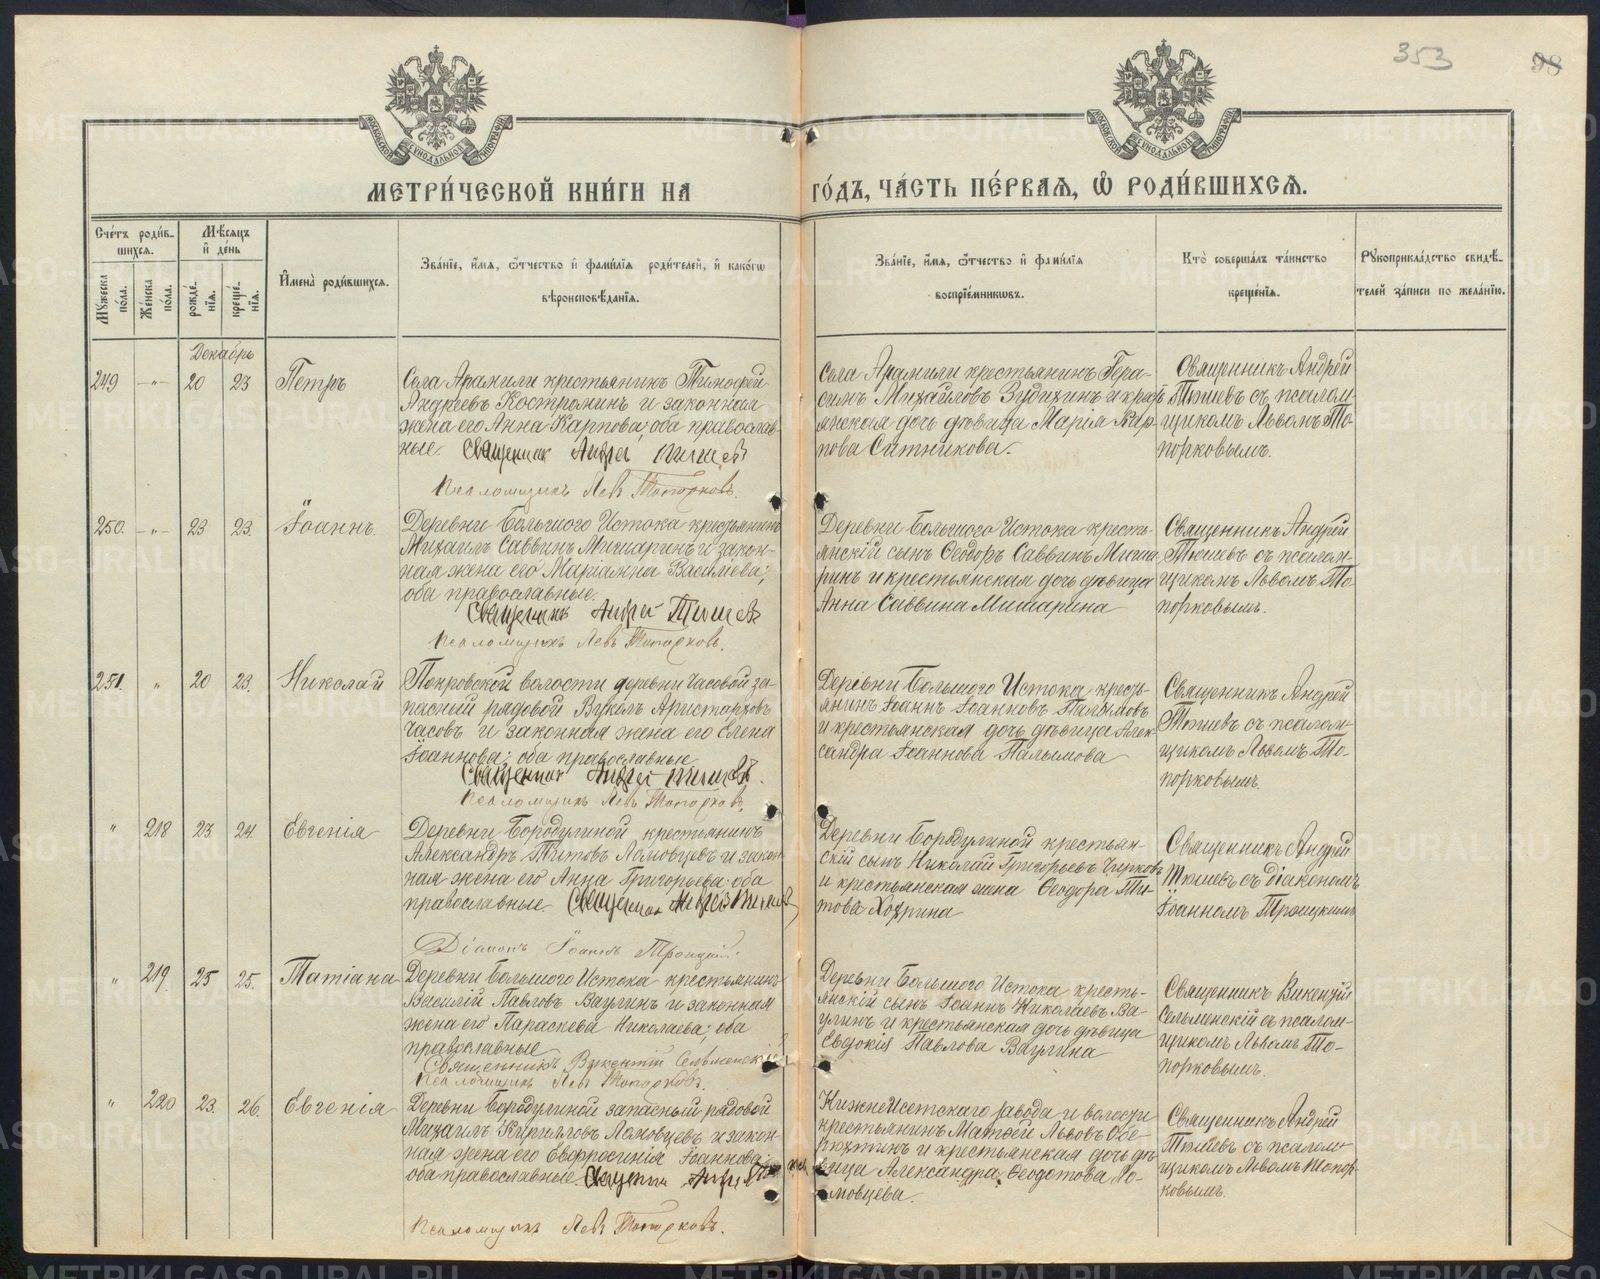 353
98
МОСКОВСКОЙ СѴНОДАЛЬНОЙ ТИПОГРАФІИ
МОСКОВСКОЙ СѴНОДАЛЬНОЙ ТИПОГРАФІИ
МЕТРИ́ЧЕСКОЙ КНИ́ГИ НА
ГО́ДЪ, ЧА́СТЬ ПЕ́РВАѦ, Ѽ РОДИ́ВШИХСѦ.
Сче́тъ роди́в-
шихсѧ.
Мꙋ́жеска по́ла.
Же́нска по́ла.
Мѣ́сѧцъ и де́нь
рожде́-нїѧ.
креще́-нїѧ.
И҆мена̀ роди́вшихсѧ.
Зва́нїе, и҆́мѧ, ѻ҆́тчество и фами́лїѧ роди́телей, и како́гѡ
вѣроисповѣ́данїѧ.
Зва́нїе, и҆́мѧ, ѻ҆́тчество и фами́лїѧ
воспрїе́мникѡвъ.
Кто̀ соверша́лъ та́инство
креще́нїѧ.
Рꙋкоприкла́дство свидѣ́-
телей за́писи по жела́нїю.
Декабрь
249 — " — 20 23 Петръ
Села Арамили крестьянинъ Тимофей
Андреевъ Костромин и законная
жена его Анна Карпова; оба православ-
ные. Священник Андрей Тюшев
Псаломщикъ Левъ Топорковъ.
Села Арамили крестьянинъ Гера-
симъ Михайловъ Зудихинъ и кресть
янская дочь дѣвица Марія Кар-
пова Ситникова.
Священникъ Андрей
Тюшевъ съ псалом-
щикомъ Львомъ То-
порковымъ.
250. — " — 23 23. Іоаннъ
Деревни Большого Истока крестьянинъ
Михаилъ Саввинъ Мишаринъ и закон-
ная жена его Маріамна Василіева;
оба православные.
Священникъ Андрей Тюшевъ
Псаломщикъ Левъ Топорковъ.
Деревни Большого Истока кресть-
янскій сынъ Ѳеодоръ Саввинъ Миша-
ринъ и крестьянская дочь дѣвица
Анна Саввина Мишарина
Священникъ Андрей
Тюшевъ съ псалом-
щикомъ Львомъ То-
порковымъ.
251. " 20 23. Николай
Покровской волости деревни Часовой за-
пасный рядовой Вуколъ Аристарховъ
Часовъ и законная жена его Елена
Іоаннова; оба православные
Священник Андрей Тюшевъ.
Псаломщикъ Левъ Топорковъ.
Деревни Большого Истока кресть-
янинъ Іоаннъ Іоанновъ Палымовъ
и крестьянская дочь дѣвица Алек-
сандра Іоаннова Палымова
Священникъ Андрей
Тюшевъ съ псалом-
щикомъ Львомъ То-
порковымъ.
" 218 23 24. Евгенія
Деревни Бородулиной крестьянинъ
Александръ Титовъ Ломовцевъ и закон-
ная жена его Анна Григорьева оба
православные. Священник Андрей Тюшев
Діаконъ Іоаннъ Троицкій.
Деревни Бородулиной крестьян-
скій сынъ Николай Григорьевъ
и крестьянская жена Ѳеодора Ти-
това
Священникъ Андрей
Тюшевъ съ діакономъ
Іоанномъ Троицкимъ
" 219. 25 25. Татіана
Деревни Большого Истока крестьянинъ
Василій Павловъ Ваулинъ и законная
жена его Параскева Николаева; оба
православные
Священникъ Викентій Сельменскій
Псаломщикъ Левъ Топорковъ.
Деревни Большого Истока кресть-
янскій сынъ Іоаннъ Николаевъ Ва-
улинъ и крестьянская дочь дѣвица
Евдокія Павлова Ваулина
Священникъ Викентій
Сельменскій съ псалом-
щикомъ Львомъ То-
порковымъ.
" 220 23. 26. Евгенія
Деревни Бородулиной запасный рядовой
Михаилъ Кирилловъ Ломовцевъ и закон-
ная жена его Евфросинія Іоаннова
оба православные. Священник Андрей
Псаломщикъ Левъ Топорковъ.
НижнеИсетскаго завода и волости
крестьянинъ Матѳей Львовъ Обе-
рюхтинъ и крестьянская дочь дѣ-
вица Александра Ѳеодотова Ло-
мовцева.
Священникъ Андрей
Тюшевъ съ псалом-
щикомъ Львомъ Топор-
ковымъ.
METRIKI.GASO-URAL.RU